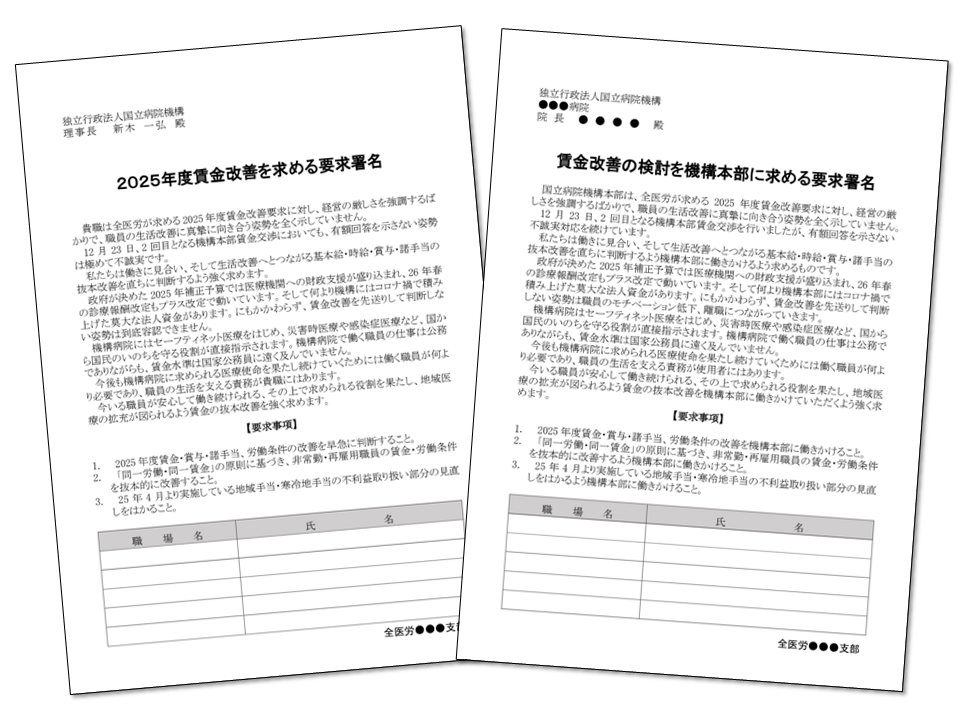 独立行政法人国立病院機構
理事長 新木 一弘 殿
2025年度賃金改善を求める要求署名
貴職は全医労が求める2025年度賃金改善要求に対し、経営の厳しさを強調するば
かりで、職員の生活改善に真摯に向き合う姿勢を全く示していません。
12月23日、2回目となる機構本部賃金交渉においても、有額回答を示さない姿勢
は極めて不誠実です。
私たちは働きに見合い、そして生活改善へとつながる基本給・時給・賞与・諸手当の
抜本改善を直ちに判断するよう強く求めます。
政府が決めた2025年補正予算では医療機関への財政支援が盛り込まれ、26年春
の診療報酬改定もプラス改定で動いています。そして何より機構にはコロナ禍で積み
上げた莫大な法人資金があります。にもかかわらず、賃金改善を先送りして判断しな
い姿勢は到底容認できません。
機構病院にはセーフティネット医療をはじめ、災害時医療や感染症医療など、国か
ら国民のいのちを守る役割が直接指示されます。機構病院で働く職員の仕事は公務
でありながら、賃金水準は国家公務員に遠く及んでいません。
今後も機構病院に求められる医療使命を果たし続けていくためには働く職員が何よ
り必要であり、職員の生活を支える責務が貴職にはあります。
今いる職員が安心して働き続けられる、その上で求められる役割を果たし、地域医
療の拡充が図られるよう賃金の抜本改善を強く求めます。
【要求事項】
1. 2025年度賃金・賞与・諸手当、労働条件の改善を早急に判断すること。
2. 「同一労働・同一賃金」の原則に基づき、非常勤・再雇用職員の賃金・労働条件
を抜本的に改善すること。
3. 25年4月より実施している地域手当・寒冷地手当の不利益取り扱い部分の見直
しをはかること。
職 場 名 氏 名
全医労●●●支部
独立行政法人国立病院機構
●●●病院
院 長 ● ● ● ● 殿
賃金改善の検討を機構本部に求める要求署名
国立病院機構本部は、全医労が求める2025年度賃金改善要求に対し、経営の厳
しさを強調するばかりで、職員の生活改善に真摯に向き合う姿勢を全く示していません。
12月23日、2回目となる機構本部賃金交渉を行いましたが、有額回答を示さない
不誠実対応を続けています。
私たちは働きに見合い、そして生活改善へとつながる基本給・時給・賞与・諸手当の
抜本改善を直ちに判断するよう機構本部に働きかけるよう求めるものです。
政府が決めた2025年補正予算では医療機関への財政支援が盛り込まれ、26年春
の診療報酬改定もプラス改定で動いています。そして何より機構本部にはコロナ禍で
積み上げた莫大な法人資金があります。にもかかわらず、賃金改善を先送りして判断
しない姿勢は職員のモチベーション低下、離職につながっていきます。
機構病院はセーフティネット医療をはじめ、災害時医療や感染症医療など、国から
国民のいのちを守る役割が直接指示されます。機構病院で働く職員の仕事は公務で
ありながらも、賃金水準は国家公務員に遠く及んでいません。
今後も機構病院に求められる医療使命を果たし続けていくためには働く職員が何よ
り必要であり、職員の生活を支える責務が使用者にはあります。
今いる職員が安心して働き続けられる、その上で求められる役割を果たし、地域医
療の拡充が図られるよう賃金の抜本改善を機構本部に働きかけていただくよう強く求
めます。
【要求事項】
1. 2025年度賃金・賞与・諸手当、労働条件の改善を機構本部に働きかけること。
2. 「同一労働・同一賃金」の原則に基づき、非常勤・再雇用職員の賃金・労働条件
を抜本的に改善するよう機構本部に働きかけること。
3. 25年4月より実施している地域手当・寒冷地手当の不利益取り扱い部分の見直
しをはかるよう機構本部に働きかけること。
職 場 名 氏 名
全医労●●●支部